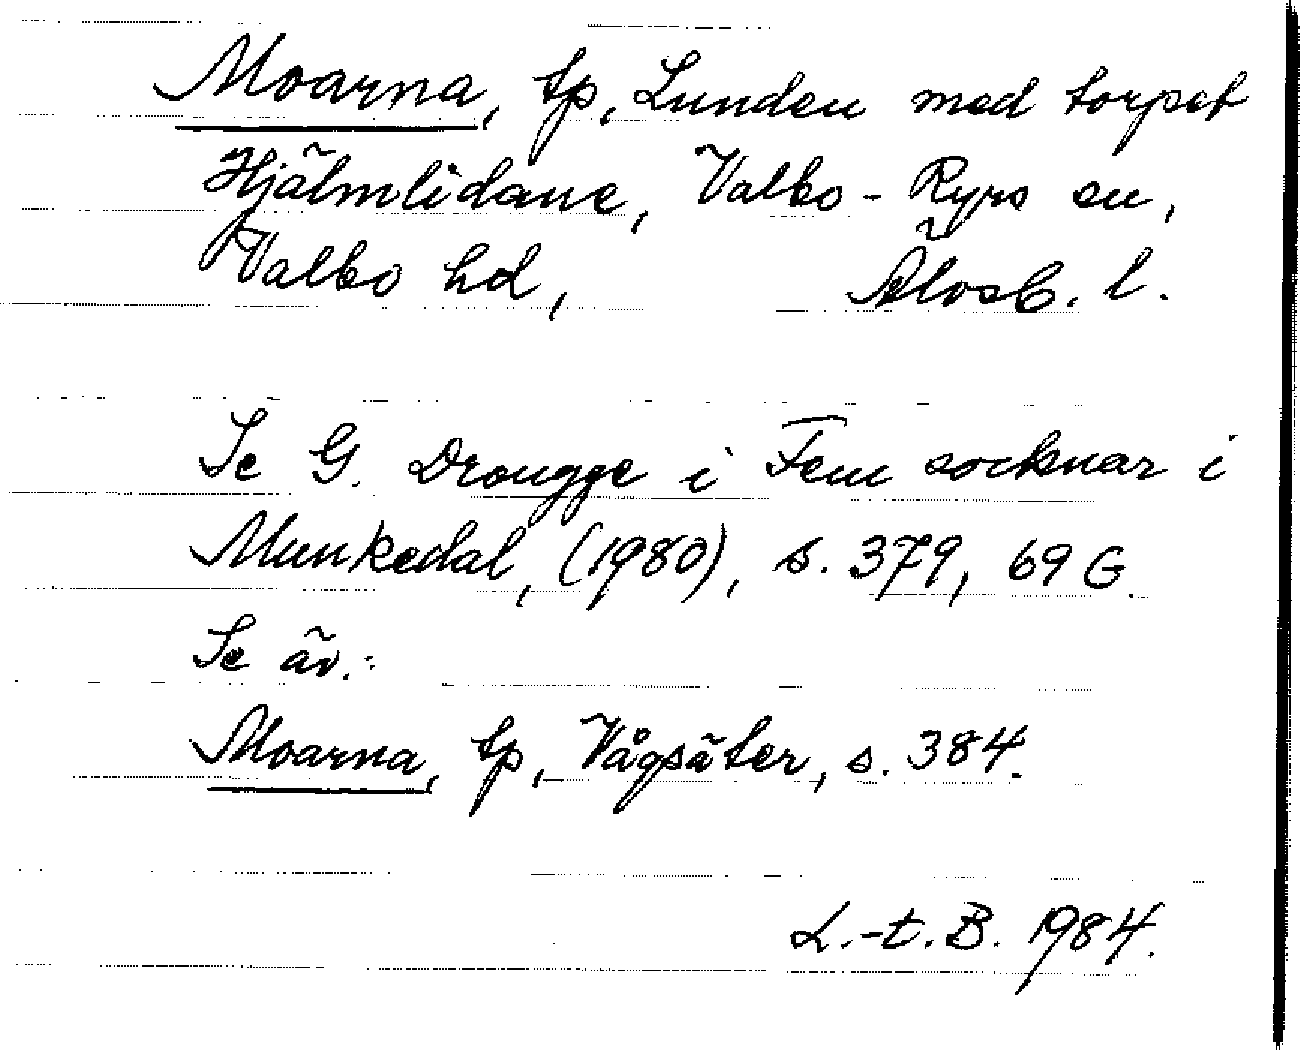 Moarna, tp, Lunden med torpet
Hjälmlidane, Valbo-Ryrs sn,
Valbo hd, Älvsb. l.
Se G. Drougge i Fem socknar i
Munkedal, (1980), s. 379, 69 G.
Se äv.:
Moarna, tp, Vågsäter, s. 384.
L.-t. B. 1984.